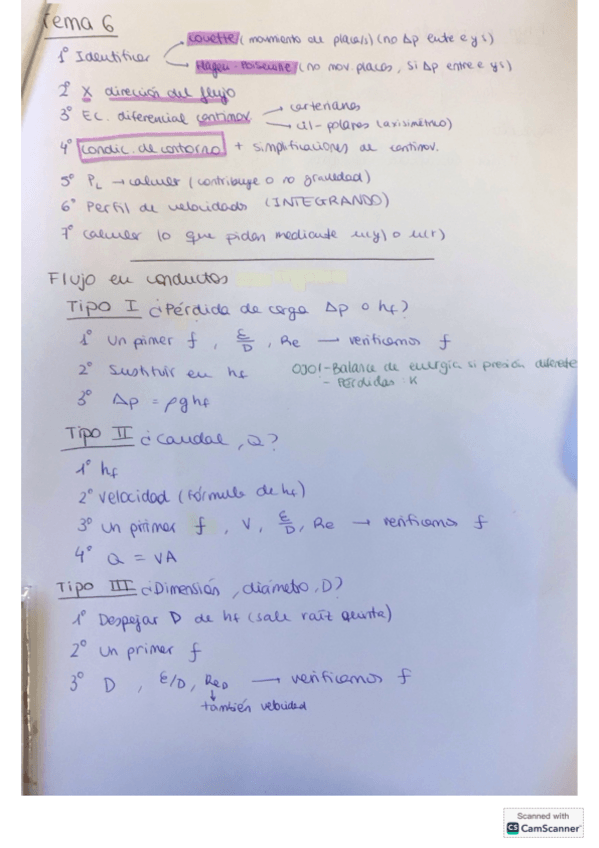 Tema 6
1º Identificar → couette (movimiento de placa/s) (no Δp entre e y s)
→ Hagen-Poiseuille (no mov placas, si Δp entre e y s)
2º X dirección del flujo
3º EC. diferencial continuv. → cartesianas
→ cil-polares (axisimétrico)
4º Condic. de contorno + simplificaciones de continuv.
5º PL → calcular (contribuye o no gravedad)
6º Perfil de velocidades (INTEGRANDO)
7º calcular lo que pidan mediante u(y) o u(r)
Flujo en conductos
Tipo I ¿Pérdida de carga Δp o hf?
1º Un primer f, ε/D, Re → verificamos f
2º Sustituir en hf
OJO! - Balance de energía si presión diferente
- Pérdidas K
3º Δp = ρghf
Tipo II ¿Caudal, Q?
1º hf
2º Velocidad (Fórmula de hf)
3º Un primer f, V, ε/D, Re → verificamos f
4º Q = VA
Tipo III ¿Dimensión, diámetro, D?
1º Despejar D de hf (sale raíz quinta)
2º Un primer f
3º D, ε/D, ReD → verificamos f
↓
también velocidad
Scanned with
CS CamScanner